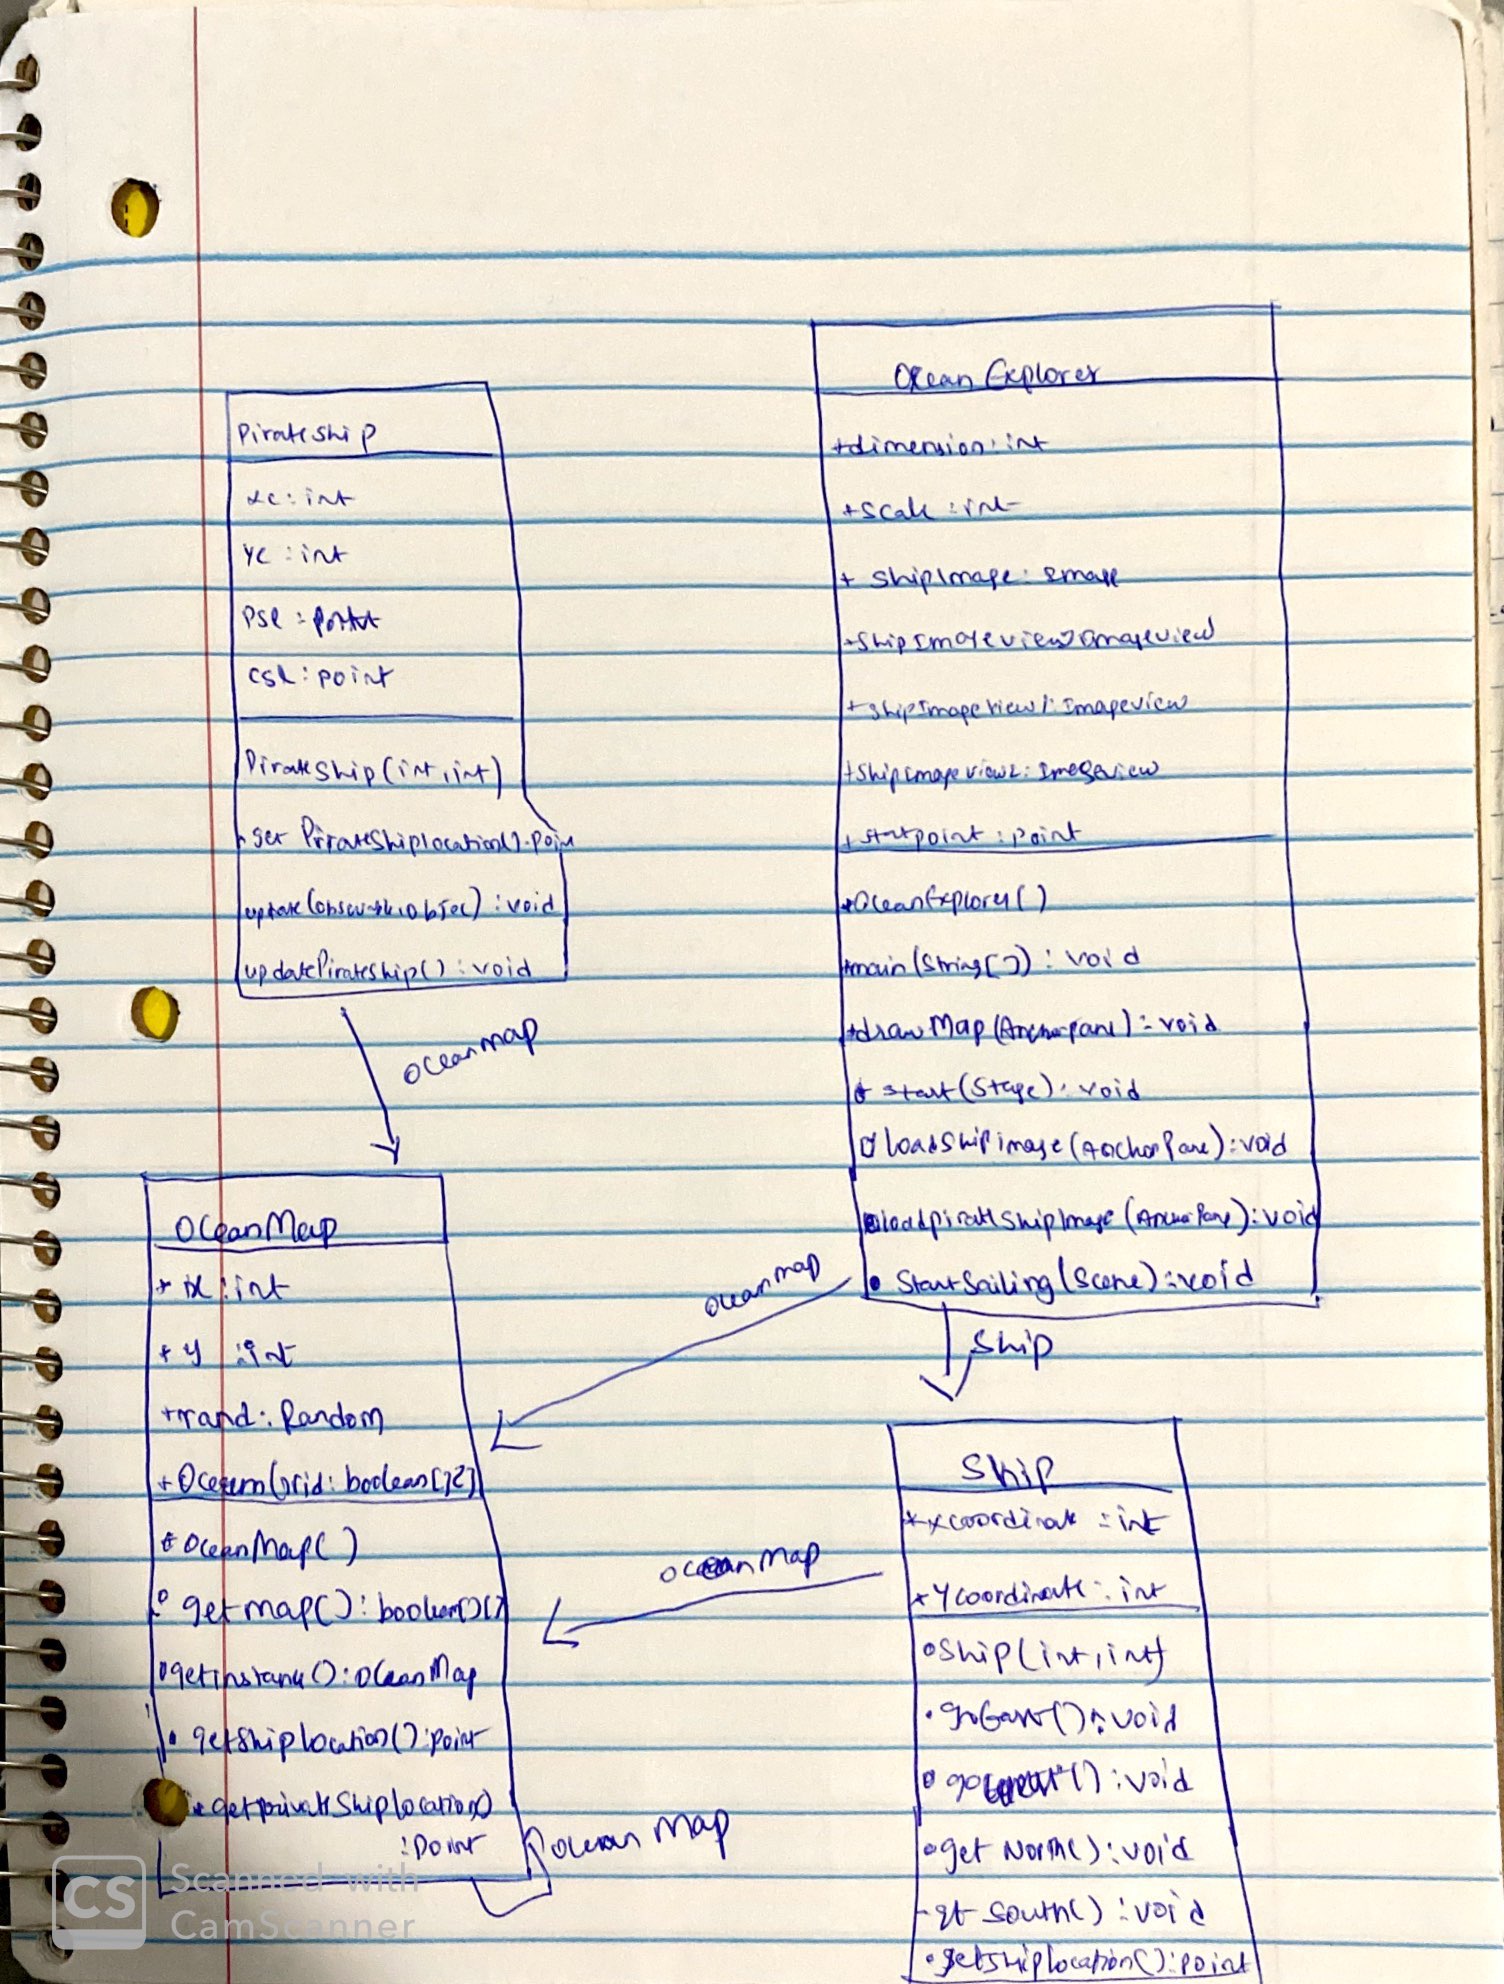 PirateShip
xc : int
yc : int
psl : point
csl : point
PirateShip (int, int)
get PirateShiplocation() : poin
update ( ) : void
updatePirateship() : void
oceanmap
Ocean Explorer
+ dimension : int
+ scale : int
+ ShipImage : Image
+ ShipImageview : Imageview
+ ShipImageview1 : Imageview
+ ShipImageview2 : Imageview
+ startpoint : point
+ OceanExplorer()
+ main (String[]) : void
+ draw Map (Anchorpane) : void
start (Stage) : void
loadShipimage (AnchorPane) : void
loadpirateShipImage (AnchorPane) : void
• StartSailing (Scene) : void
oceanmap
Ship
OceanMap
+ x : int
+ y : int
+ rand : Random
+ OceanGrid : boolean[][]
OceanMap( )
getmap() : boolean[][]
getinstance() : OceanMap
• getShiplocation() : point
getpirateShiplocation()
: point
oceanMap
oceanMap
Ship
+ xcoordinate : int
+ Ycoordinate : int
Ship (int, int)
• goEast() : void
go () : void
get North() : void
get South() : void
• getShiplocation() : point
CS Scanned with
CamScanner